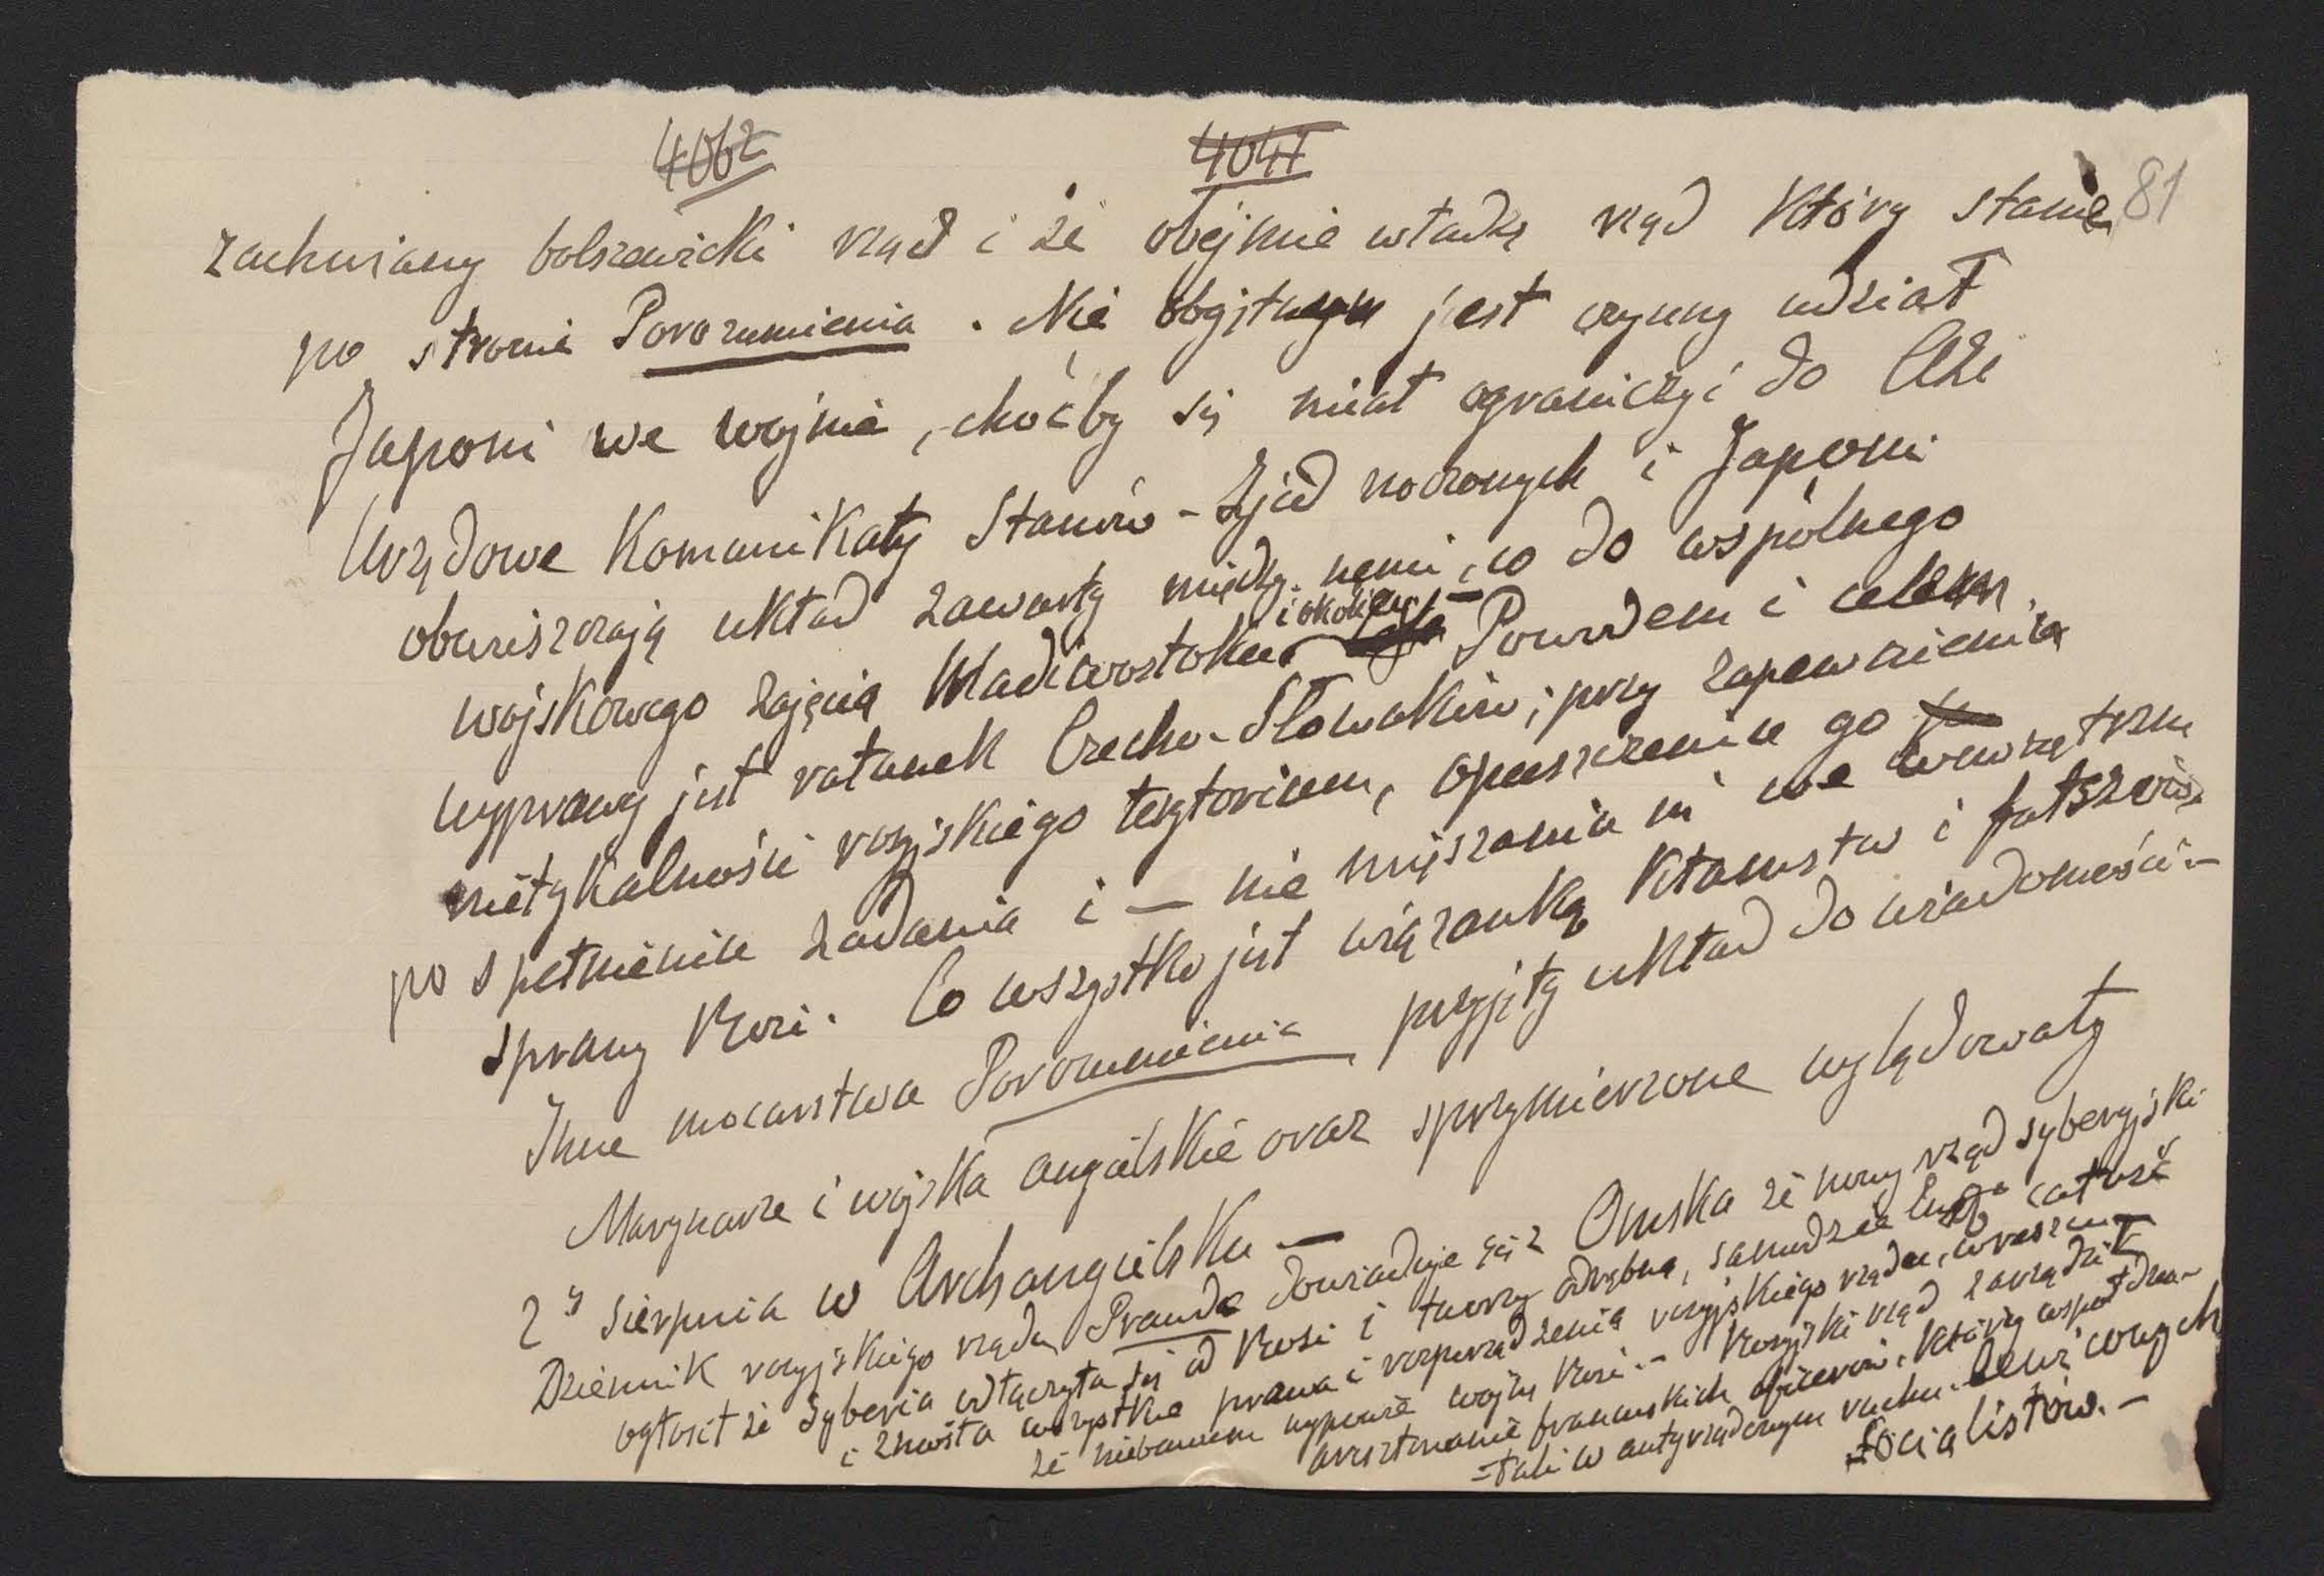 4062 4047
81
zachwiany bolszewicki rząd i że obejmie władzę rząd który stanie
po stronie Porozumienia. Nie obojętnym jest czynny udział
Japoni we wojnie, choćby się miał ograniczyć do Azi
Urzędowe Komunikaty Stanów-Zjednoczonych i Japoni
obwieszczają układ zawarty między nemi, co do wspólnego
i okolicy
wojskowego zajęcia Wladiwostoku Powodem i celem
wyprawy jest ratunek Czecho-Słowaków; przy zapewnieniu
nietykalności rosyjskiego terytorium, opuszczeniu go
po spełnieniu zadania i — nie mięszania się we wewnętrzne
sprawy Rosi. Co wszystko jest wiązanką kłamstw i fałszów
Inne mocarstwa Porozumienia przyjęły układ do wiadomości.—
Marynarze i wojska angielskie oraz sprzymierzone wylądowały
2go sierpnia w Archangielsku —
Dziennik rosyjskiego rządu Prawda dowiaduje się z Omska że nowy rząd syberyjski
ogłosił że Syberia odłączyła się od Rosi i tworzy odrębną, samodzielną całość
i zniosła wszystkie prawa i rozporządzenia rosyjskiego rządu, wreszcie
że niebawem wypowie wojnę Rosi.— Rosyjski rząd zarządził
aresztowanie francuskich oficerów, którzy współdzia-
-łali w antyrządowym ruchu lewicowych
socialistów.—